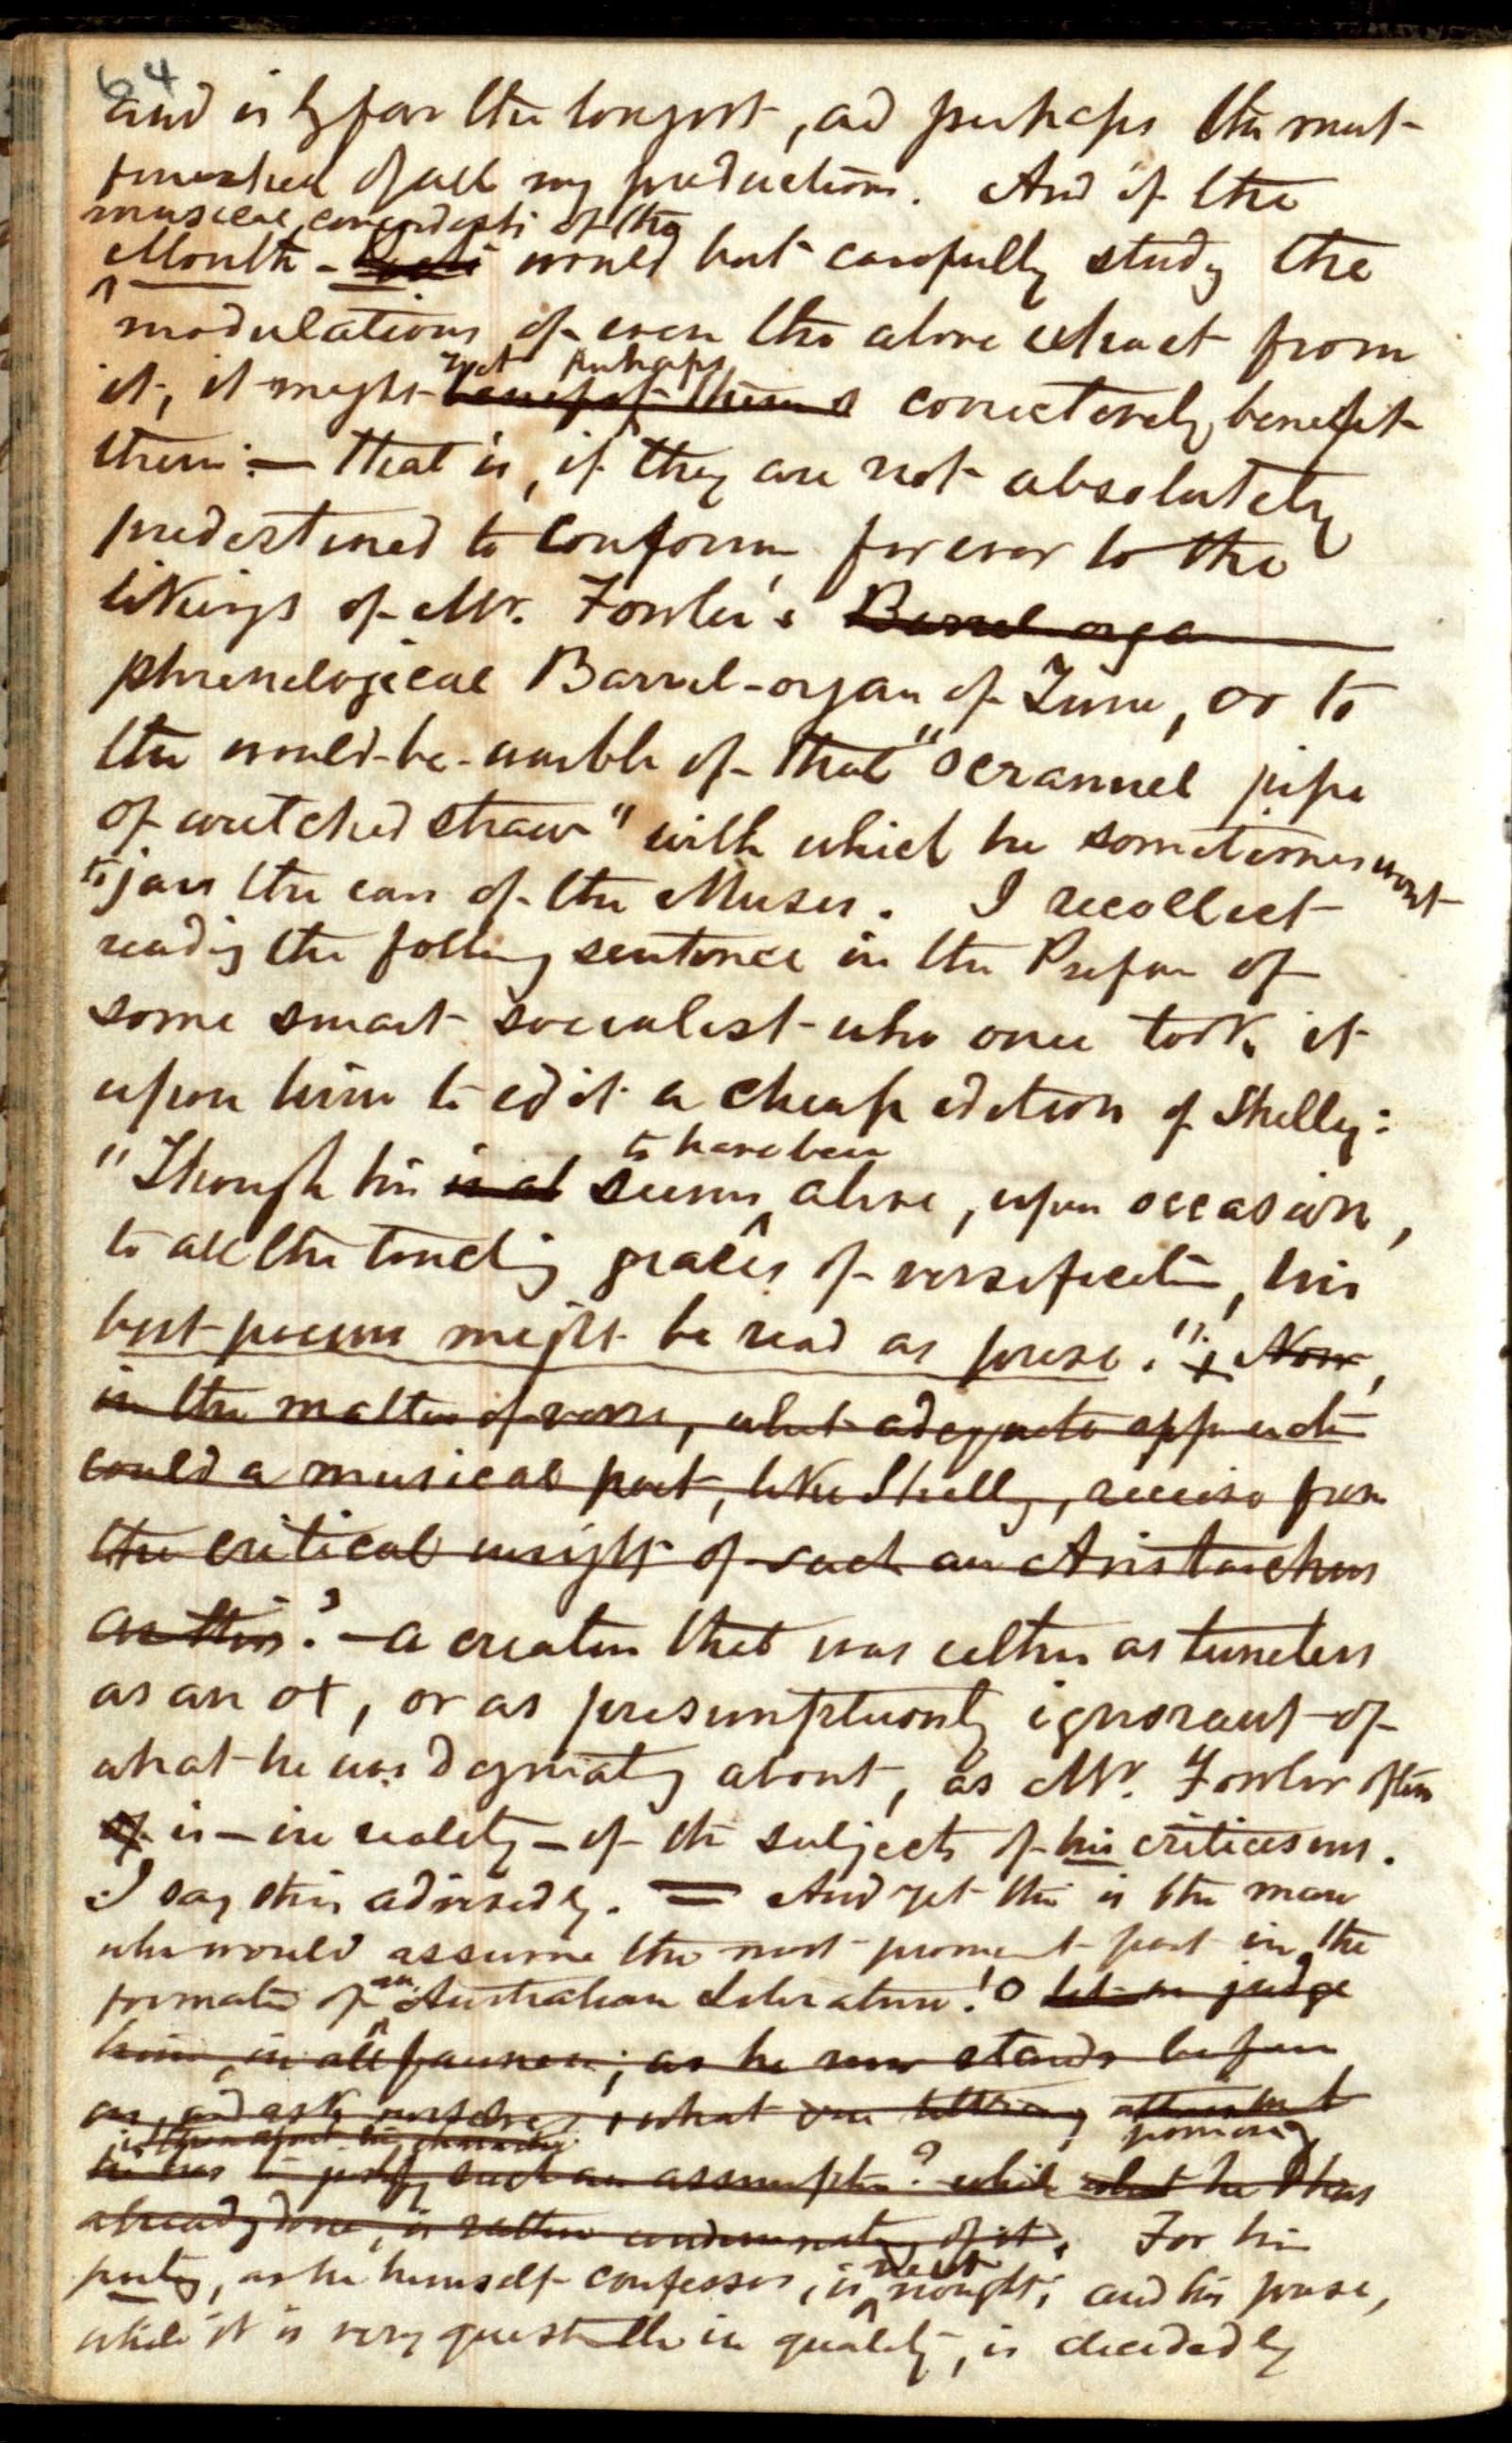 64
and is by far the longest, and perhaps the most
finished of all my productions. And if the
musical correspondents of the
Month - would but carefully study the
modulations of even the above extract from
not perhaps
it, it might benefit them correctively benefit
them: — that is, if they are not absolutely
predestined to conform for ever to the
likings of Mr. Fowler's Barrel orga
phrenological Barrel-organ of Tune, or to
the would-be-warble of that "scrannel pipe
of wretched straw" with which he sometimes wont
to jars the ears of the Muses. I recollect
readig the follwg sentence in the Preface of
some smart socialist who once took it
upon him to edit a cheap edition of Shelly:
to have been
"Though he is al seems alive, upon occasion,
to all the touchig graces of versificatin, his
best poems might be read as prose."; Now,
in the matter of verse, what adequate appreciatn
could a musical poet, like Shelly, receive from
the critical insight of such an Aristarchus
as this? — a creature that was either as tuneless
as an ox, or as presumptuously ignorant of
what he was dogmatizg about, as Mr. Fowler often
of is — in reality — of the subjects of his criticisms.
I say this advisedly. = And yet this is the man
who would assume the most prominent part in the
formatn of an Australian Literature! O let us judge
him, in all fairness, as he now stands before
us, and ask ourselves, what
promising
he has to justify such an assumptn? while what he has
already done, is rather condemnatory of it. For his
next
poetry, as he himself confesses, is nought; and his prose,
while it is very questnble in quality, is decidedly